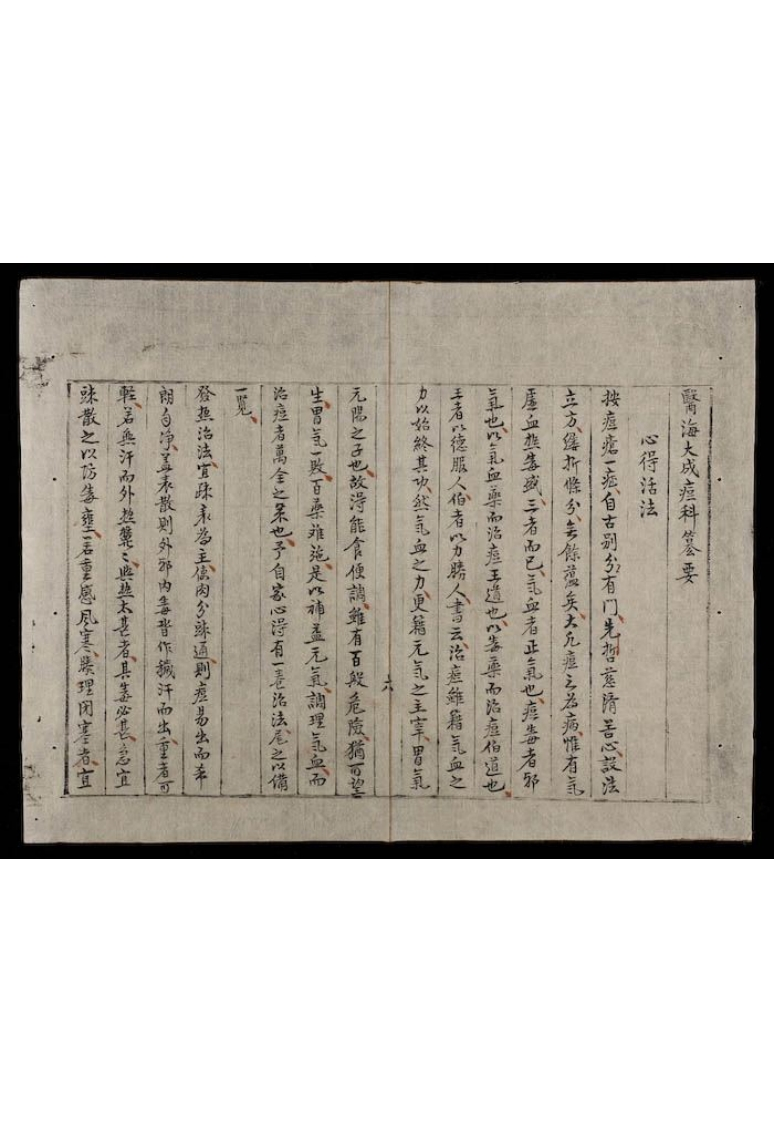 醫海大成痘科纂要
心得活法
按痘瘡一症自古别分有門先哲慈済苦心設法
立方縷析條分無餘蘊矣大凢痘之為病惟有氣
虛血熱毒盛三者而已氣血者正氣也痘毒者邪
氣也以氣血藥而治痘王道也以毒藥而治痘伯道也
王者以德服人伯者以力勝人書云治痘雖藉氣血之
力以始終其功然氣血之力更藉元氣之主宰胃氣
六
元陽之子也故淂能食便調雖有百般危險猶可望
生胃氣一敗百藥难施是以補益元氣調理氣血而
治痘者萬全之策也予自家心淂有一善治法尽之以備
一覧
發熱治法宜疎表為主使肉分疎通則痘易出而希
朗自净盖表散則外邪内毒皆作穢汗而出重者可
軽若無汗而外熱蒸〻與熱太甚者其毒必甚急宜
疎散之以防毒壅若重感風寒腠理闭塞者宜